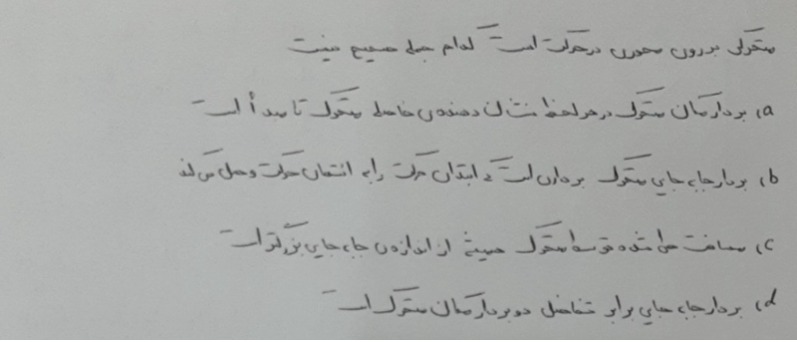 متحرکی بر روی محوری در حرکت است کدام جمله صحیح نیست
a) بردار مکان متحرک در هر لحظه نشان دهنده‌ی فاصله متحرک تا مبدأ است
b) بردار جابه جایی متحرک برداری است که ابتدای حرکت را به انتهای حرکت وصل می کند
c) مسافت طی شده توسط متحرک همیشه از اندازه‌ی جابه جایی بزرگتر است
d) بردار جابه جایی برابر تفاضل دو بردار مکان متحرک است